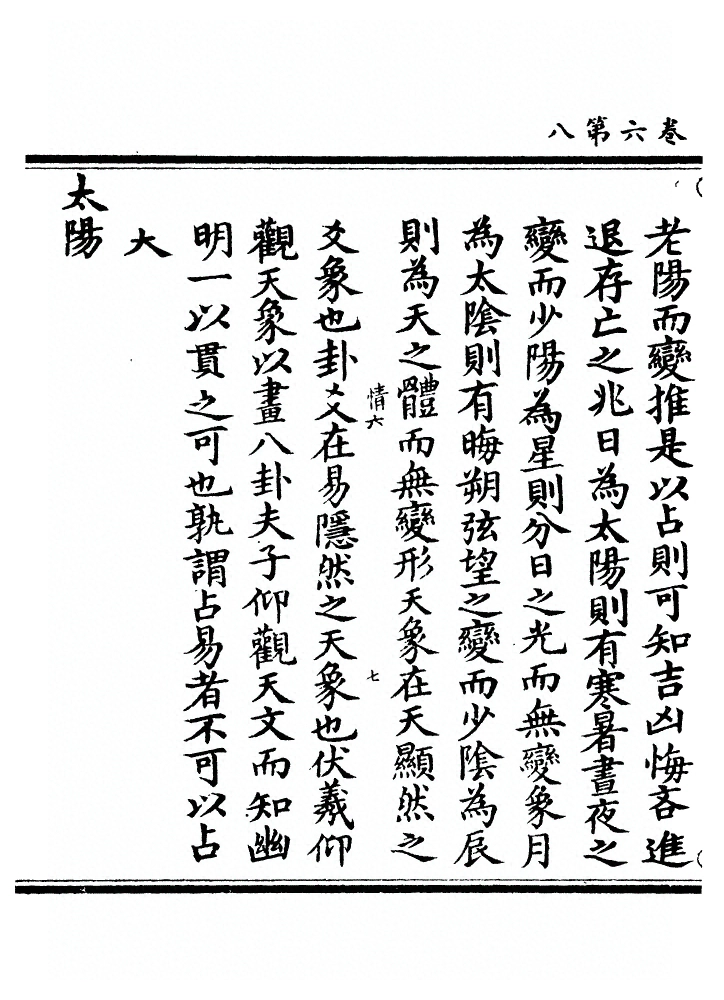 卷六第八
老陽而變推是以占則可知吉凶悔吝進
退存亡之兆日為太陽則有寒暑晝夜之
變而少陽為星則分日之光而無變象月
為太陰則有晦朔弦望之變而少陰為辰
則為天之體而無變形天象在天顯然之
情六
七
爻象也卦爻在易隱然之天象也伏羲仰
觀天象以畫八卦夫子仰觀天文而知幽
明一以貫之可也孰謂占易者不可以占
大
太陽